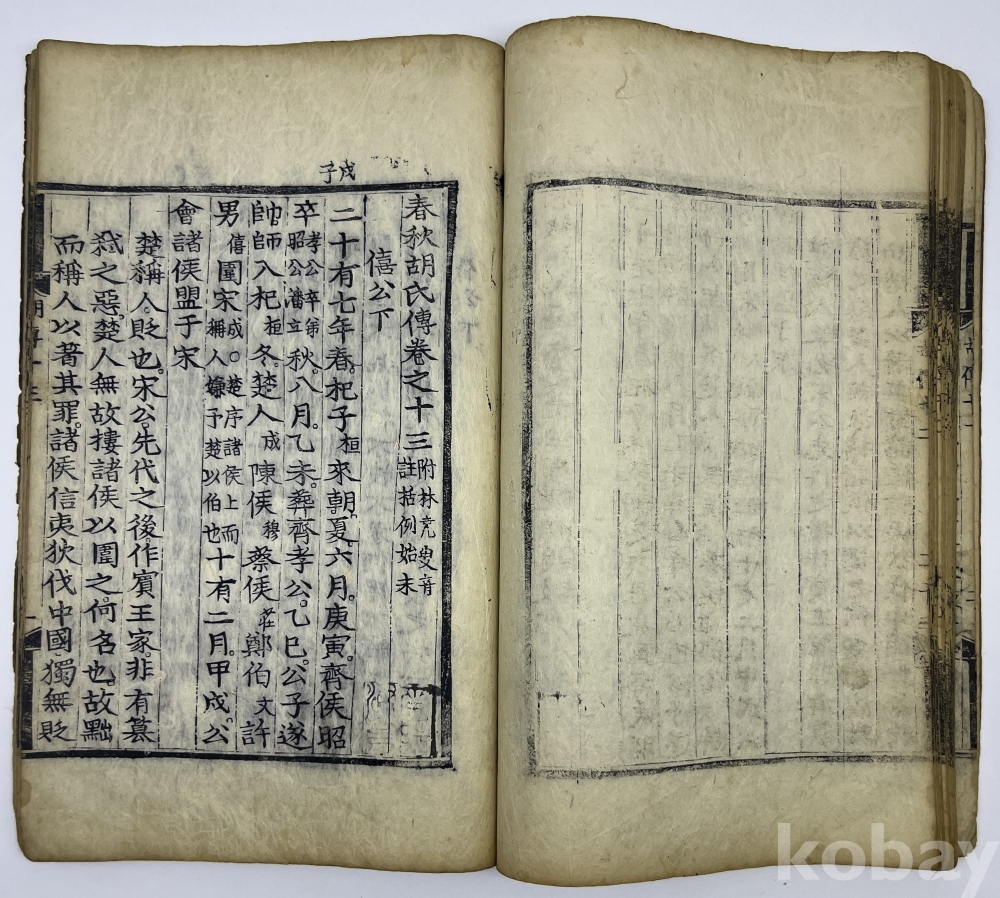 戊子
春秋胡氏傳卷之十三 附林堯叟音註括例始末
僖公下
二十有七年春。杞子桓來朝。夏六月。庚寅。齊侯昭
卒孝公卒弟昭公潘立秋八月。乙未。葬齊孝公。乙巳。公子遂
帥師入杞桓冬。楚人成陳侯穆蔡侯莊鄭伯文許
男僖圍宋成。楚序諸侯上而稱人嫌予楚以伯也十有二月。甲戌。公
會諸侯盟于宋
楚稱人。貶也。宋公。先代之後。作賓王家。非有簒
弑之惡。楚人無故摟諸侯以圍之。何名也。故黜
而稱人以著其罪。諸侯信夷狄伐中國。獨無貶
胡傳十三
一
kobay